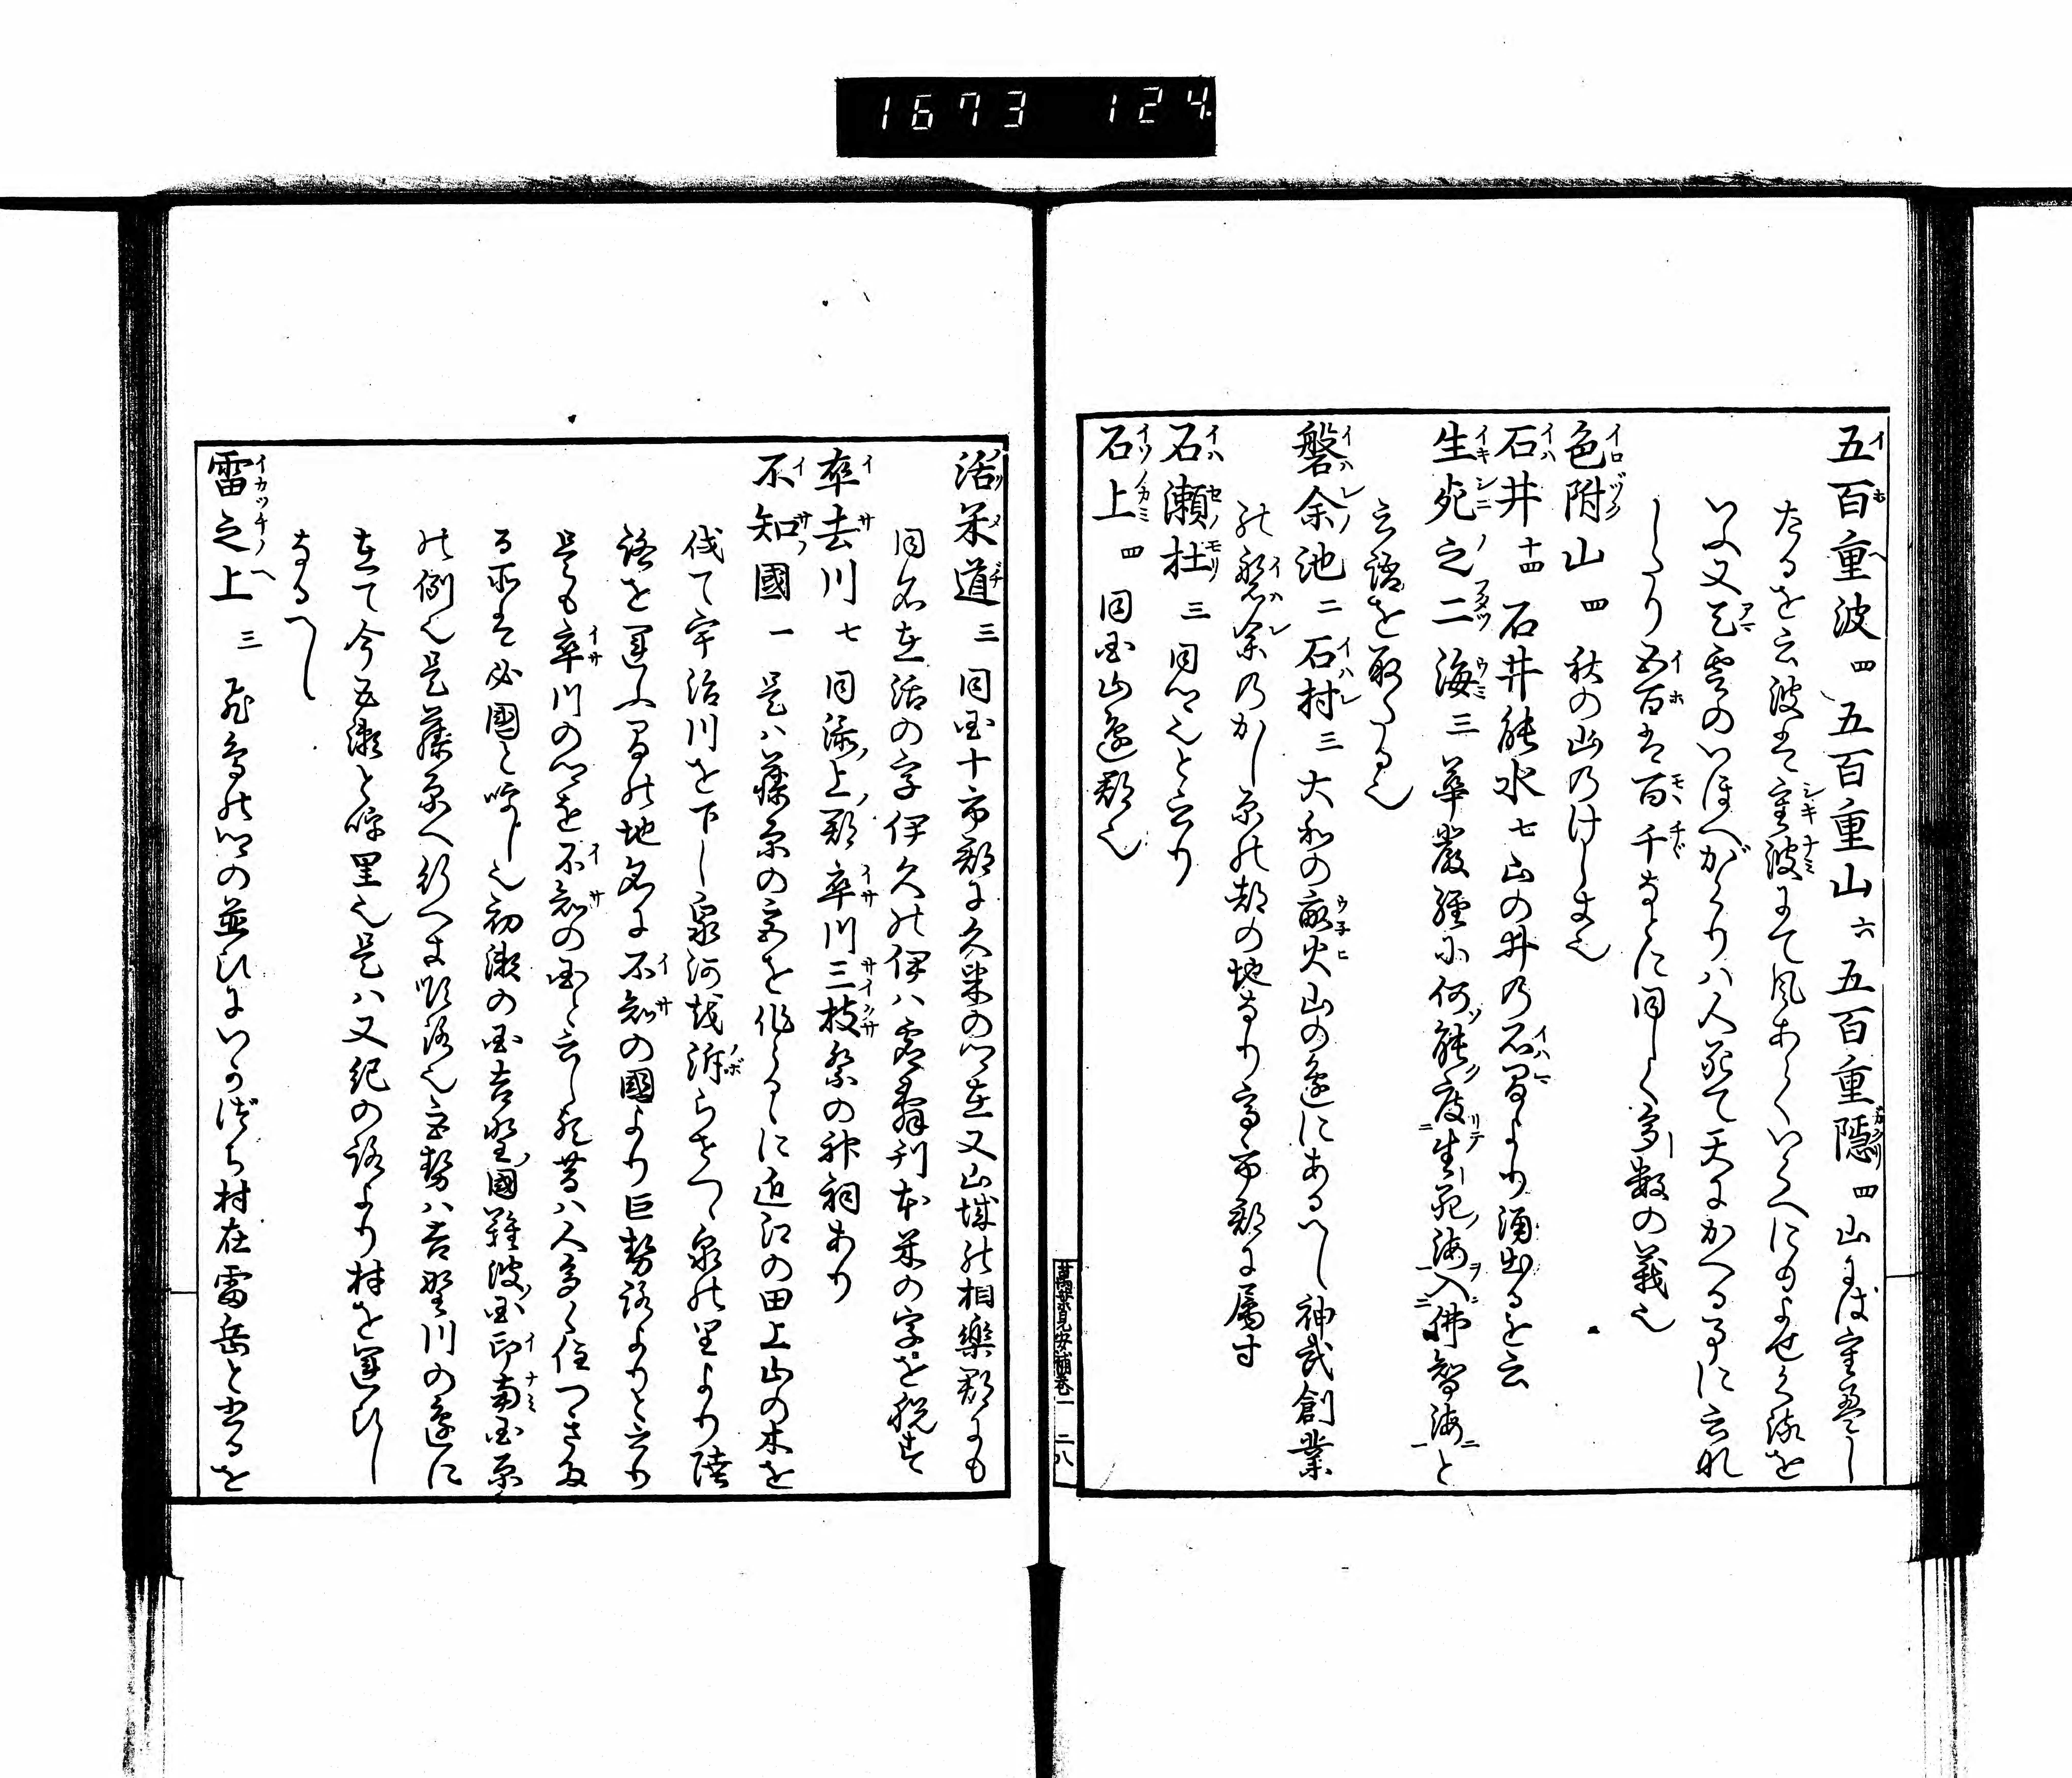 1673 124.
五百重波 四 五百重山 六 五百重隠 四 山にば重畳し
たるを云波は重波にて風あらくいくへにもよせく浪を
いふ又天雲のいほへがくりハ人死て天にかへる事に云れ
したり五百は百千などに同しく多数の義也
色附山 四 秋の山のけしき也
石井 十四 石井能水 七 山の井の石間より涌出るを云
生死之二海 三 華厳経に何能度生死海入佛智海と
云語を取たる也
磐余池 二 石村 三 大和の畝火山の邊にあるへし神武創業
の磐余のかし原の都の地なり高市郡に属す
石瀬杜 三 同所也と云り
石上 四 同国山邊郡也
萬葉見安補巻一 二八
活米道 三 同国十市郡に久米の所在又山城の相楽郡にも
同名在活の字伊久の伊ハ号刊本米の字を脱す
率去川 七 同添上郡率川三枝祭の神祠あり
不知國 一 是ハ藤原の宮を作らるゝに近江の田上山の木を
伐て宇治川を下し泉河を泝らせつゝ泉の里より陸
路を運ふ間の地名に不知の國より巨勢路よりと云り
是も率川の所を不知の国と云し歟昔ハ人多く住つきたる
る所は必國と唤し也初瀬の国吉野國難波国印南国原
の例也是藤原へ行へき順路也巨勢ハ吉野川の邊に
在て今五瀬と唤里也是ハ又紀の路より材を運ひし
なるへし
雷之上 三 飛鳥の所の並ひにいかづち村在雷岳と古るを